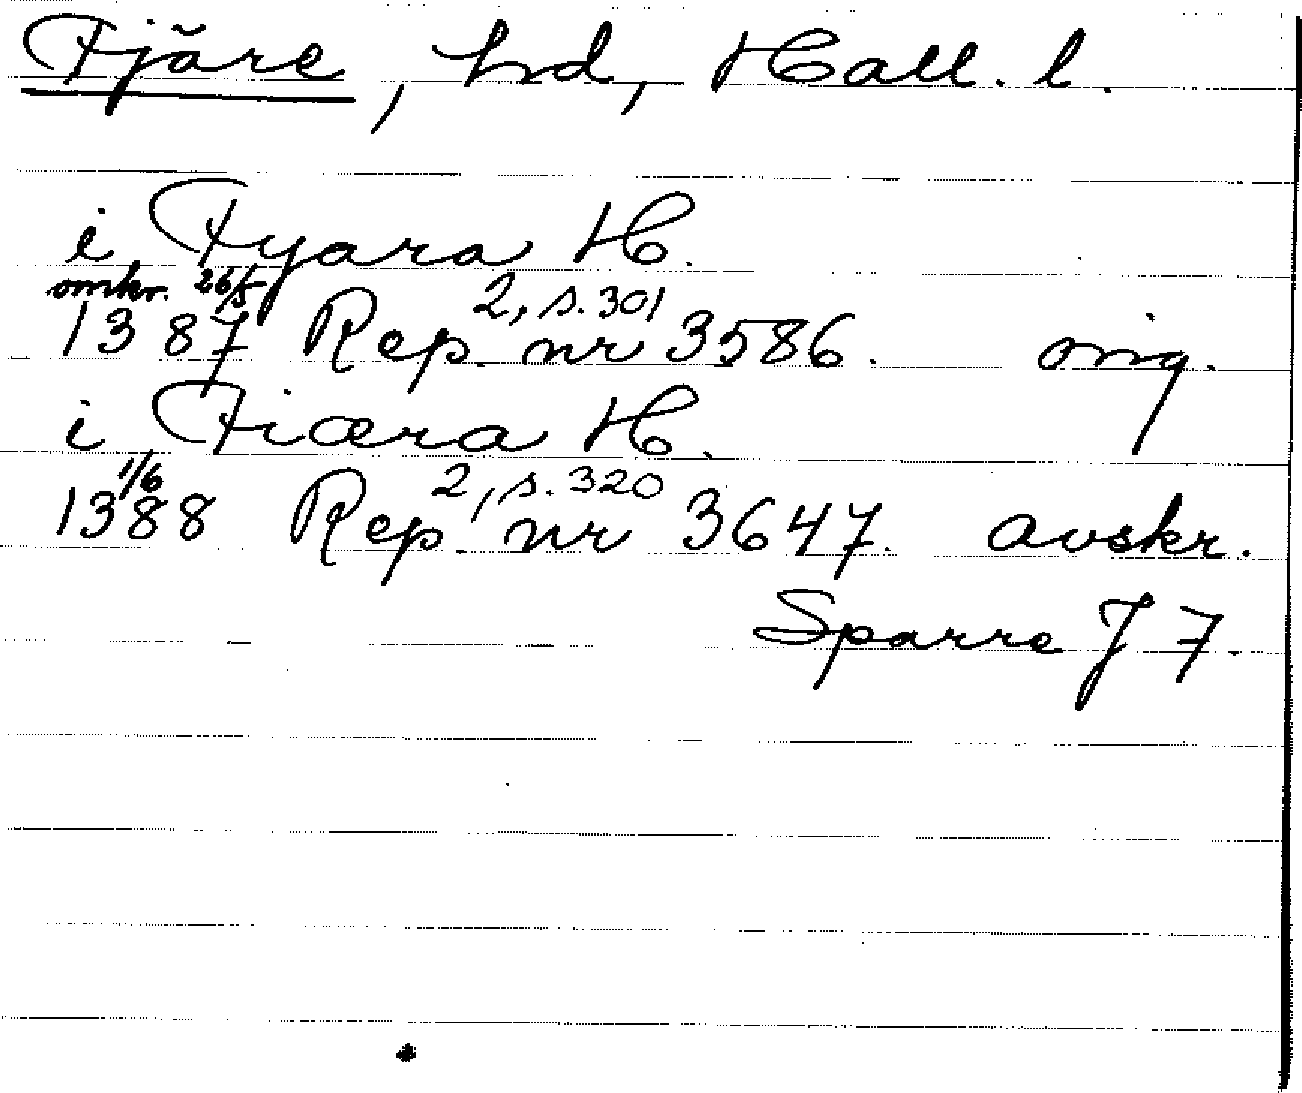 Fjäre, hd, Hall. l.
i Fyara H.
omkr. 26/5
1387 Rep. 2, s. 301 nr 3586. orig.
i Fiæra H.
1/6
1388 Rep. 2, s. 320 nr 3647. avskr.
Sparre J 7.